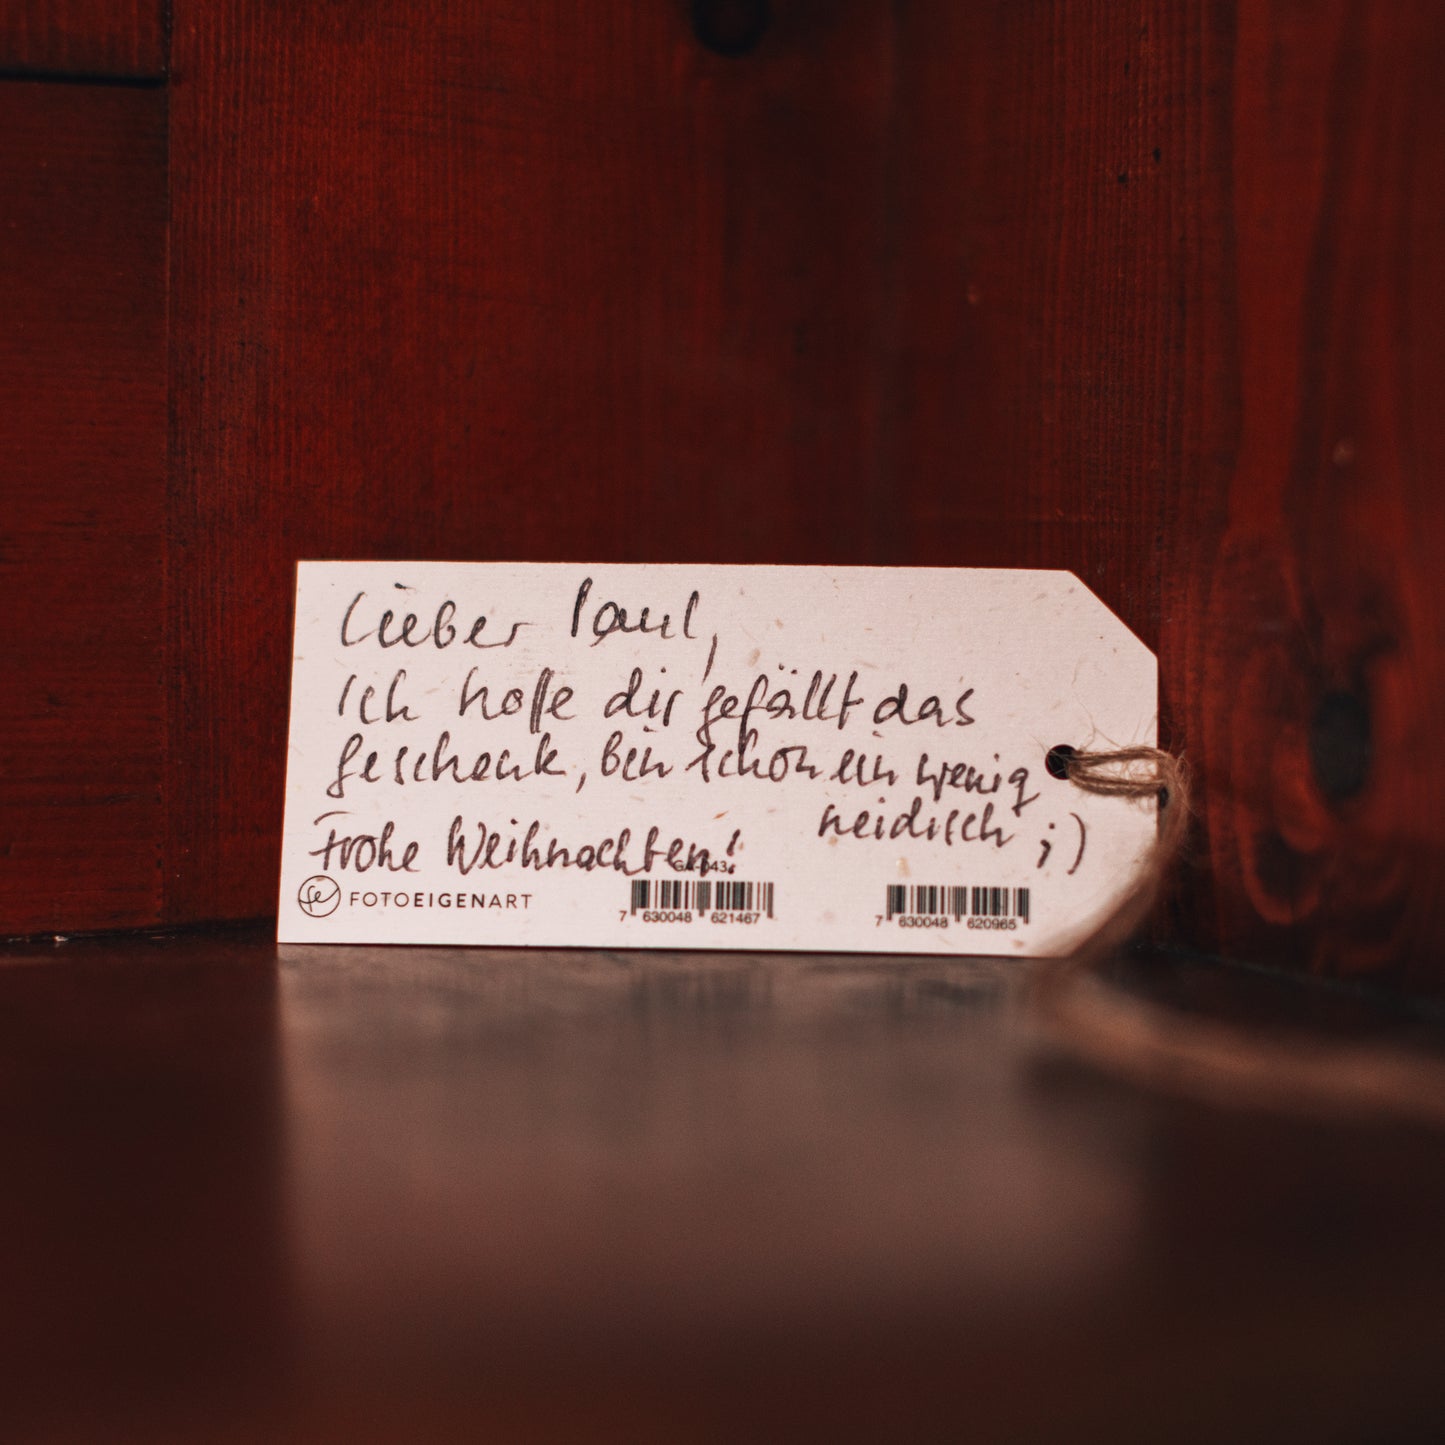 Lieber Paul,
Ich hoffe dir gefällt das
Geschenk, bin schon ein wenig
neidisch ;)
Frohe Weihnachten!
GA-043
fe FOTOEIGENART
7 630048 621467
7 630048 620965